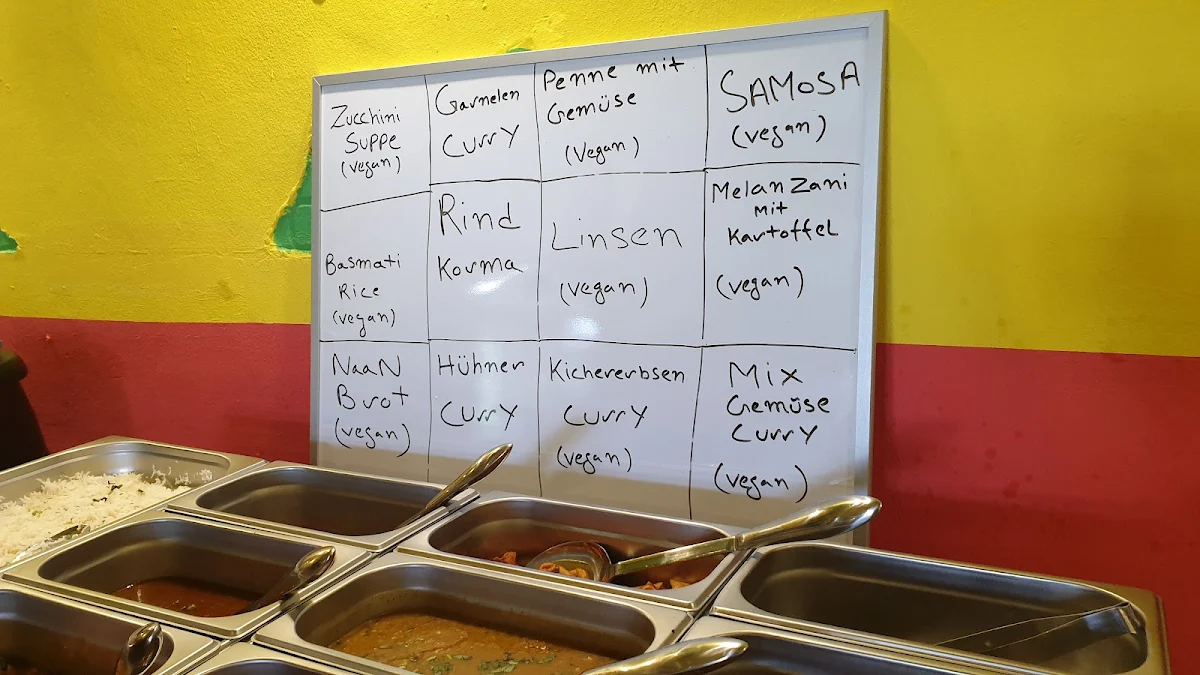 Zucchini
Suppe
(vegan)
Garnelen
Curry
Penne mit
Gemüse
(Vegan)
SAMOSA
(vegan)
Basmati
Rice
(vegan)
Rind
Korma
Linsen
(vegan)
Melan Zani
mit
Kartoffel
(vegan)
NaaN
Brot
(vegan)
Hühner
Curry
Kichererbsen
Curry
(vegan)
Mix
Gemüse
Curry
(vegan)